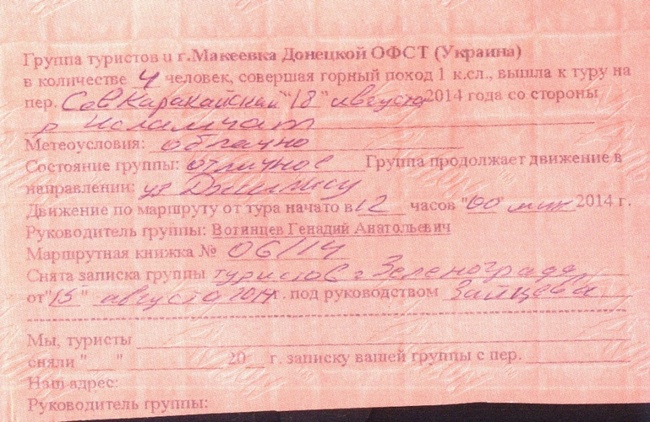 Группа туристов и г.Макеевка Донецкой ОФСТ (Украина)
в количестве 4 человек, совершая горный поход 1 к.сл., вышла к туру на
пер. Сев Каракайский "18" августа 2014 года со стороны
р Исламчат
Метеоусловия: облачно
Состояние группы: отличное Группа продолжает движение в
направлении: ущ
Движение по маршруту от тура начато в 12 часов "00 мин 2014 г.
Руководитель группы: Вотинцев Генадий Анатольевич
Маршрутная книжка № 06/14
Снята записка группы туристов г Зеленограда
от "15" августа 2014 г. под руководством Зайцева
Мы, туристы
сняли " " 20 г. записку вашей группы с пер.
Наш адрес:
Руководитель группы: